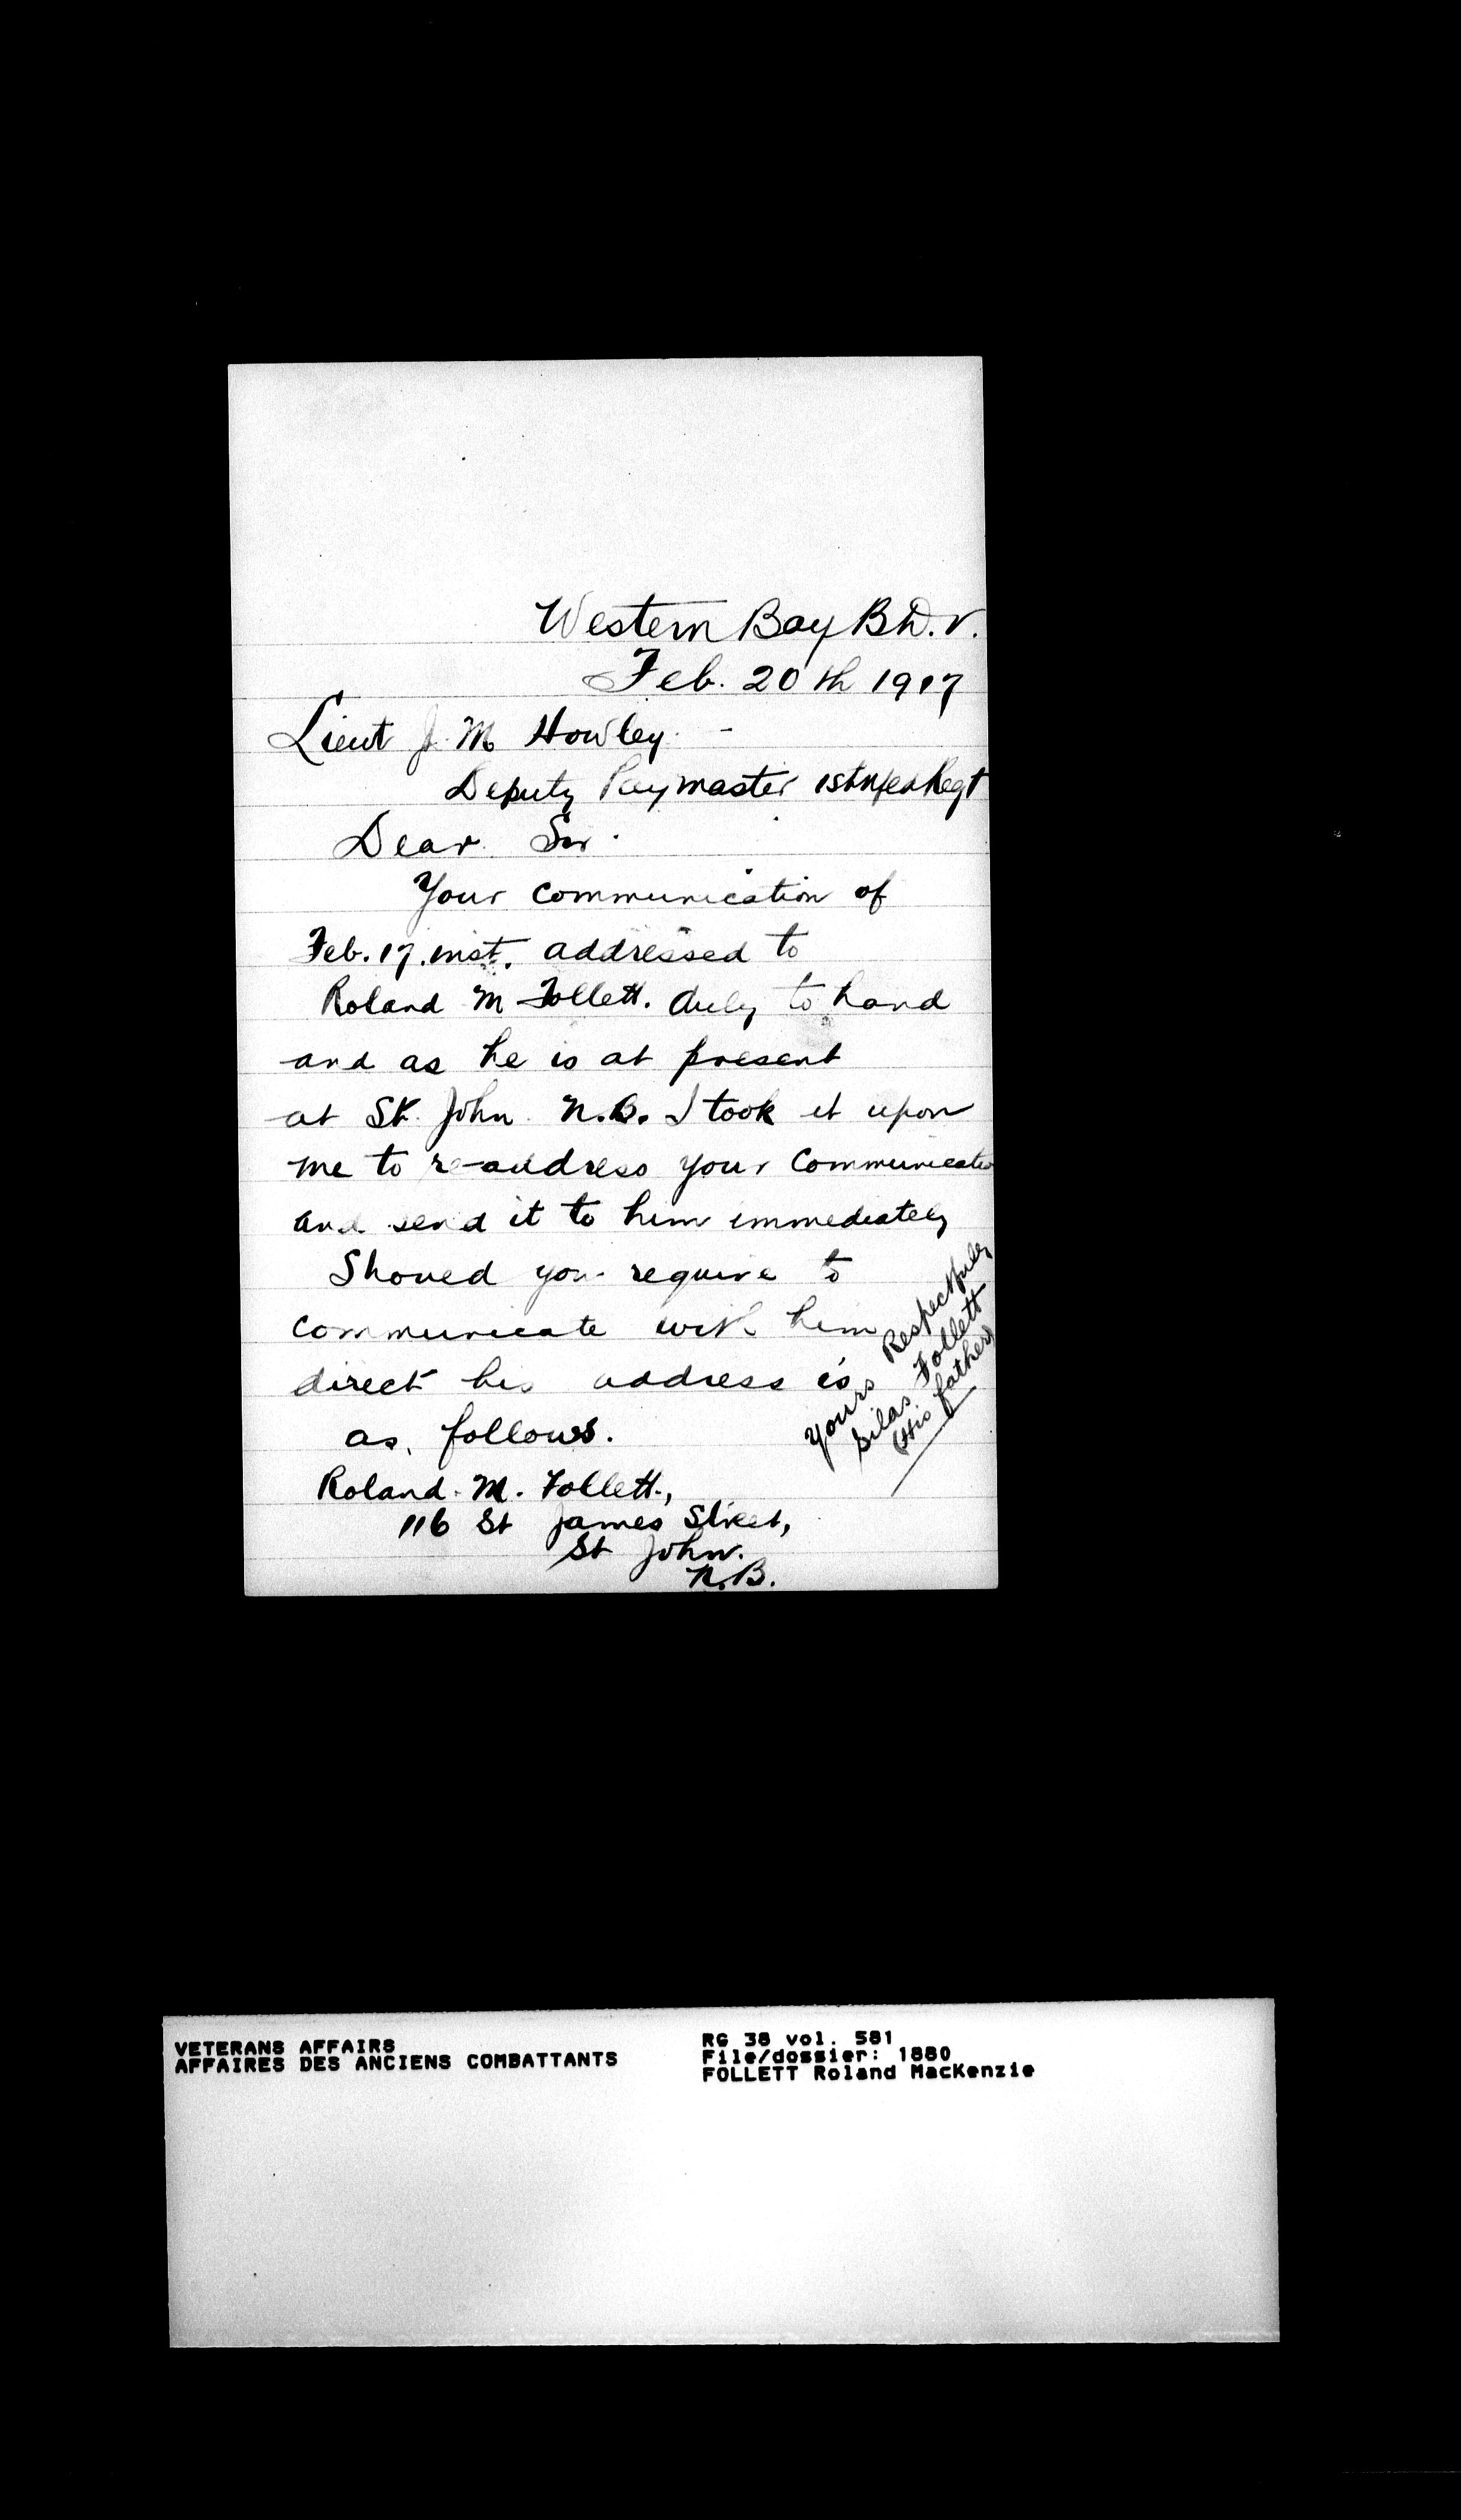 Western Bay B.D.V.
Feb. 20th 1917
Lieut J. M Howley.
Deputy Paymaster 1st Nfld Regt
Dear Sir.
Your communication of
Feb. 17. inst. addressed to
Roland M Follett. duly to hand
and as he is at present
at St. John N.B. I took it upon
me to re-address your Communication
and send it to him immediately
Should you require to
communicate with him
direct his address is
as follows.
Roland. M. Follett.,
116 St James Street,
St John.
N.B.
Yours Respectfully
Silas Follett
(His father)
VETERANS AFFAIRS
AFFAIRES DES ANCIENS COMBATTANTS
RG 38 vol. 581
File/dossier: 1880
FOLLETT Roland MacKenzie